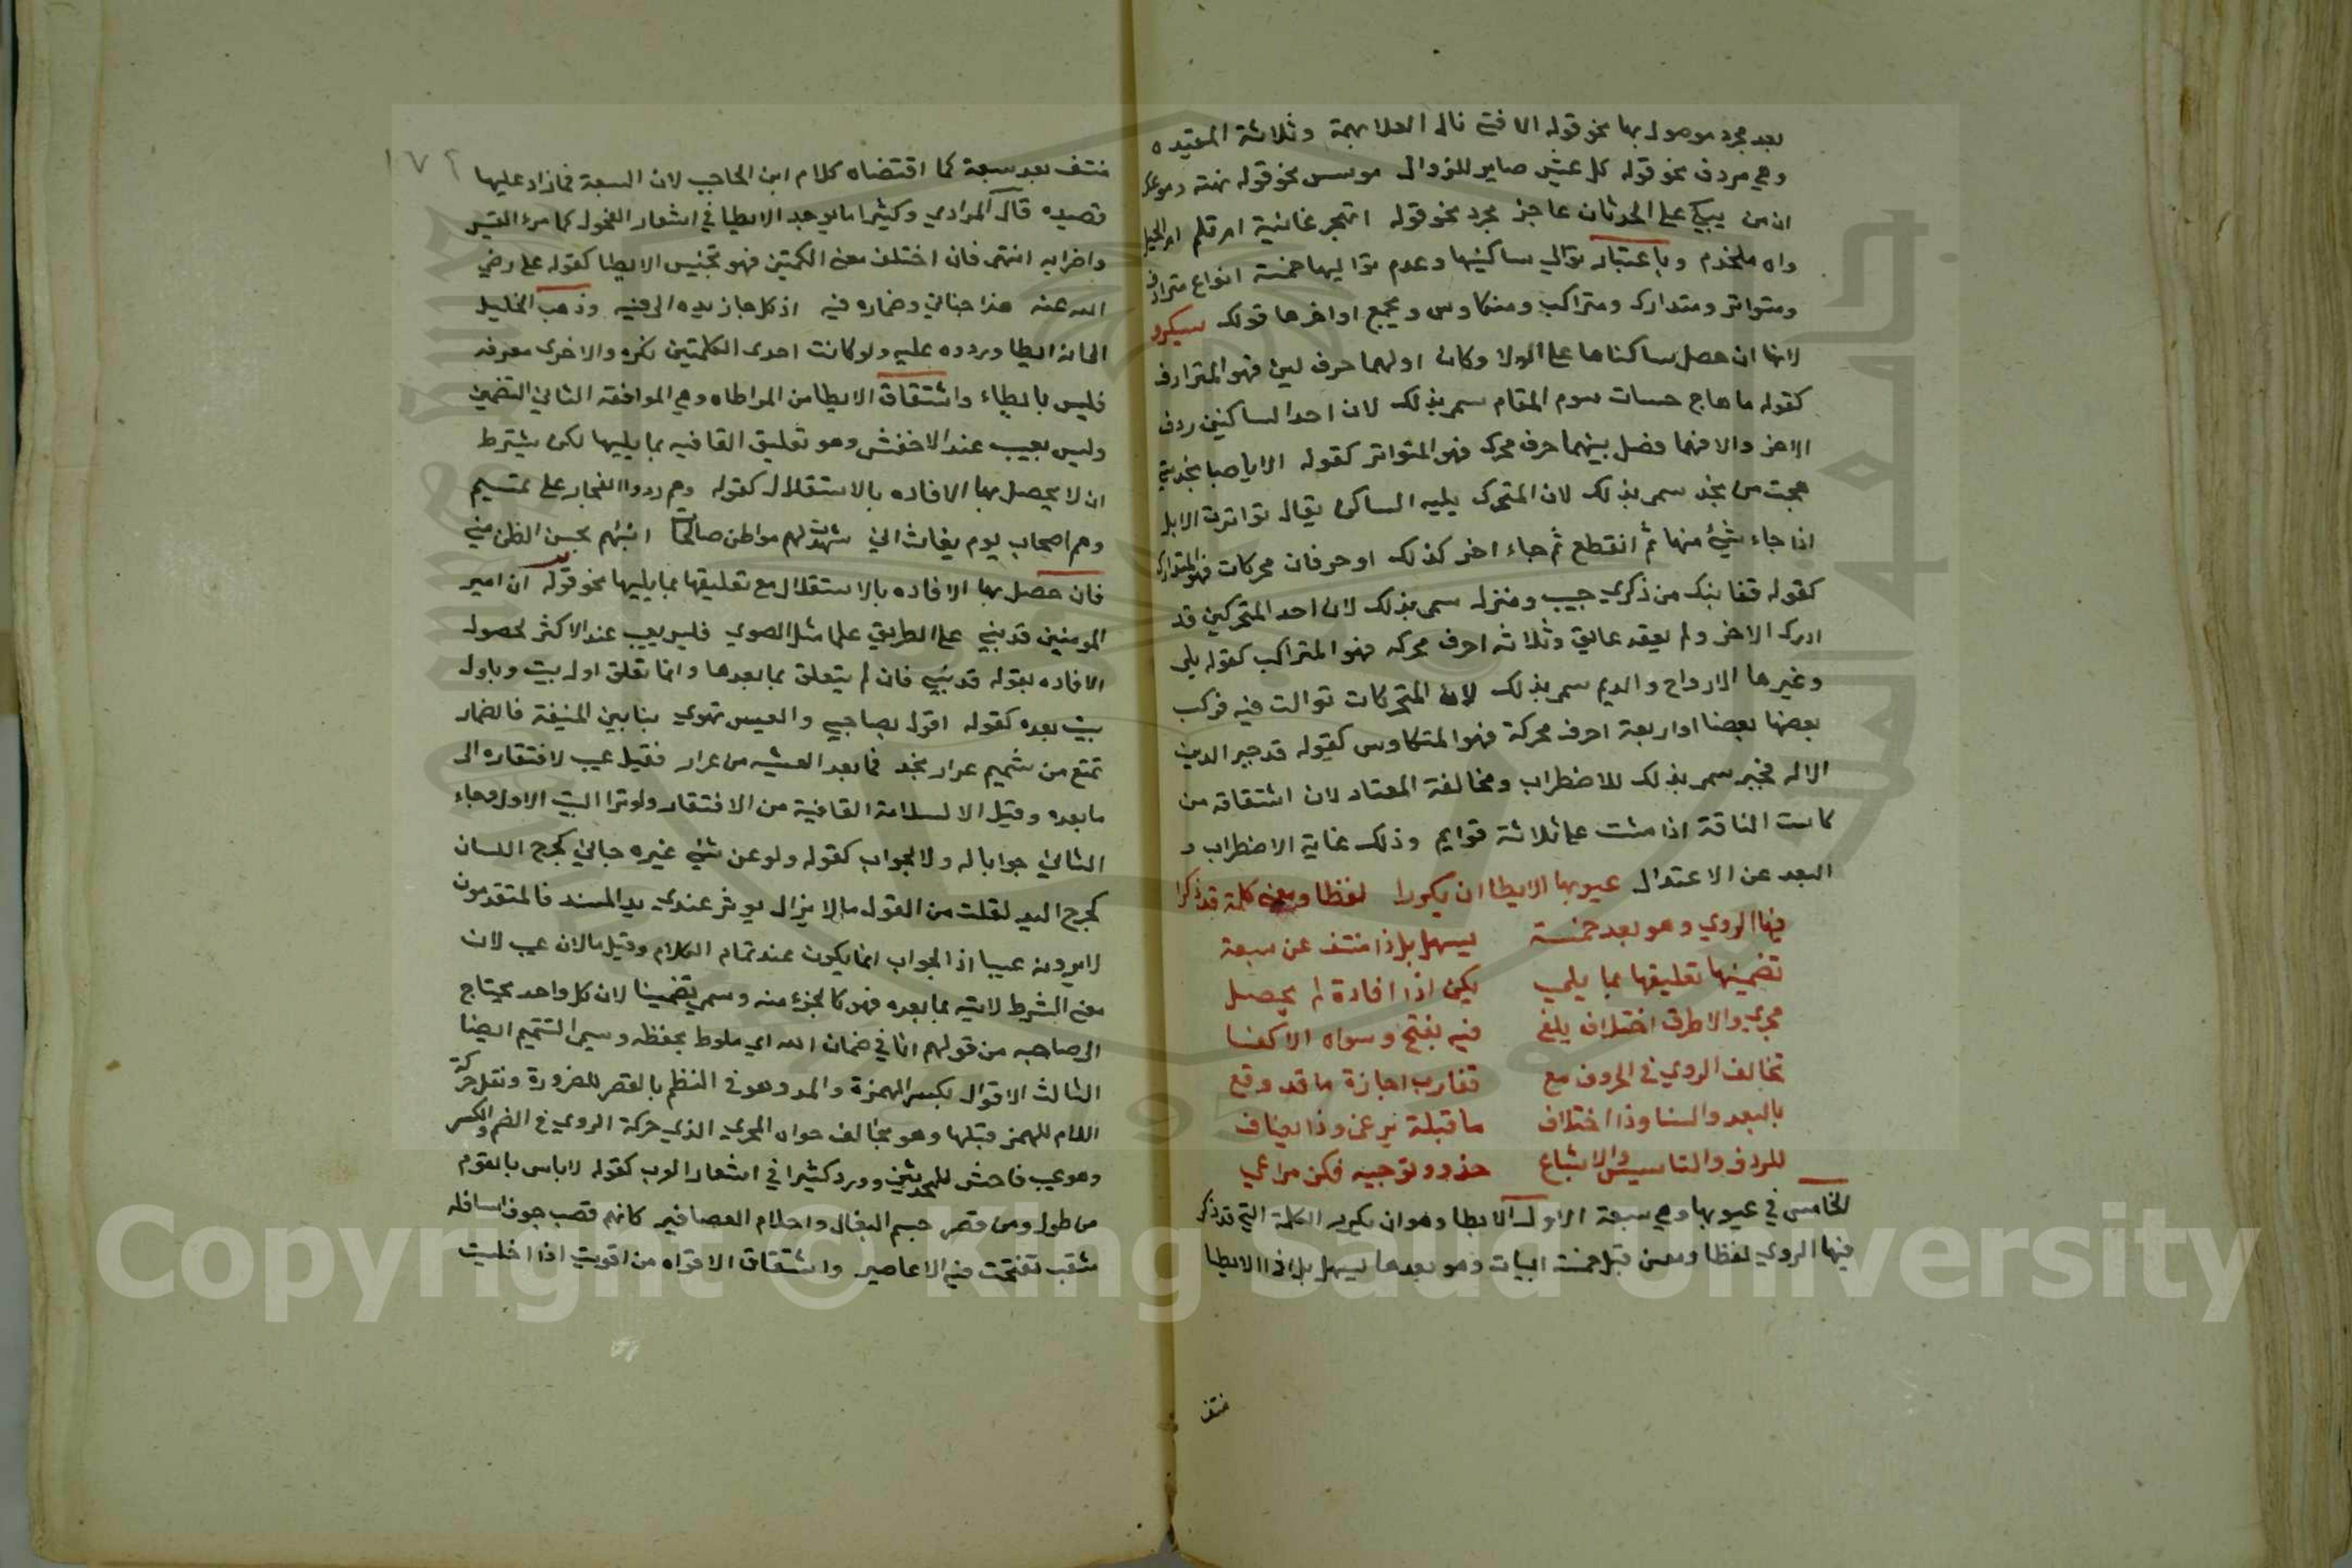 بعد مجرد موصول بها نحو قوله الا فتى نال العلا بهمة وثلاثة المقيده
وهي مردف نحو قوله كل عيش صاير للزوال موسس نحو قوله نهنه دموعك
ان من يبكي على الحدثان عاجز مجرد نحو قوله اتهجر غانية ام تلم ام الحبل
واه منخدم وباعتبار توالي ساكنيها وعدم تواليها خمسة انواع مترادف
ومتواتر ومتدارك ومتراكب ومتكاوس ويجمع اواخرها قولك سبكرف
لانها ان حصل ساكناها على الولا وكان اولهما حرف لين فهو المترادف
كقوله ما هاج حسان رسوم المقام سمي بذلك لان احد الساكنين ردف
الاخر والا فهما فصل بينهما حرف محرك فهو المتواتر كقوله الا يا صبا نجد متى
هجت من نجد سمي بذلك لان المتحرك يليه الساكن يقال تواترت الابل
اذا جاء شيء منها ثم انقطع ثم جاء اخر كذلك او حرفان محركات فهو المتدارك
كقوله قفا نبك من ذكرى حبيب ومنزل سمي بذلك لان احد المتحركين قد
ادرك الاخر ولم يعقه عايق وثلاثه احرف محركه فهو المتراكب كقوله بلى
وغيرها الارواح والديم سمي بذلك لان المتحركات توالت فيه فركب
بعضها بعضا او اربعة احرف محركة فهو المتكاوس كقوله قد جبر الدين
الاله فجبر سمي بذلك للاضطراب ومخالفة المعتاد لان اشتقاقه من
كاست الناقة اذا مشت على ثلاثة قوايم وذلك غاية الاضطراب و
البعد عن الاعتدال عيوبها الايطا ان يكررا لفظا ومعنى كلمة قد ذكرا
فيها الروي وهو بعد خمسة يسهل بل ذا منتف عن سبعة
تضمينها تعليقها بما يلي يكن اذا افادة لم يحصل
مجرى والاطرف اختلاف يلغى فيه بفتح وسواه الاكفا
تخالف الروي في الحروف مع تقارب اجازة ما قد وقع
بالبعد والسنا وذا اختلاف ما قبله نرعى وذا يضاف
للردف والتاسيس والاشباع حذو وتوجيه فكن مراعي
الخامس في عيوبها وهي سبعة الاول الايطا وهو ان يكرر الكلمة التي قد ذكر
فيها الروي لفظا ومعنى قبل خمسة ابيات وهو بعدها يسهل بل اذا الايطا
منتف
١٧٢
منتف بعد سبعة كما اقتضاه كلام ابن الحاجب لان السبعة فما زاد عليها
قصيده قال المرادي وكثيرا ما يوجد الايطا في اشعار الفحول كامرء القيس
واضرابه انتهى فان اختلف معنى الكلمتين فهو تجنيس الايطا كقوله علي رضي
الله عنه هذا جناي وخياره فيه اذ كل جان يده الى فيه وذهب الخليل
الى انه ايطا وردوه عليه ولو كانت احدى الكلمتين نكره والاخرى معرفه
فليس بايطاء واشتقاق الايطا من المواطاه وهي الموافقه الثاني التضمين
وليس بعيب عند الاخفش وهو تعليق القافيه بما يليها لكن يشترط
ان لا يحصل بها الافاده بالاستقلال كقوله وهم وردوا الفجار على تميم
وهم اصحاب يوم بغاث اني شهدت لهم مواطن صالحات اتيتهم بحسن الظن مني
فان حصل بها الافاده بالاستقلال مع تعليقها بما يليها نحو قوله ان امير
المومنين قد بني على الطريق علما مثل الصوى فليس بعيب عند الاكثر لحصول
الافاده بقوله قد بني فان لم يتعلق بما بعدها وانما تعلق اول بيت وباول
بيت بعده كقوله اقول لصاحبي والعيس تهوي بنا بين المنيفة فالضمار
تمتع من شميم عرار نجد فما بعد العشيه من عرار فقيل عيب لافتقاره الى
ما بعده وقيل الا لسلامة القافية من الافتقار ولو ترا البيت الاول وجاء
الثاني جوابا له ولا لجواب كقوله ولو عن نثي غيره جاني كجرح اللسان
كجرح اليد لقلت من القول ما لا يزال يوثر عندي يد المسند فالمتقدمون
لا يرونه عيبا اذ الجواب انما يكون عند تمام الكلام وقيل ما لان عيب لان
معنى الشرط لا يتم بما بعده فهو كالجزء منه وسمي تضمينا لان كل واحد يحتاج
الى صاحبه من قولهم انا في ضمان الله اي ملوط بحفظه وسمي التتميم ايضا
الثالث الاقوال بكسر الهمزة والمد وهو في النظم بالقصر للضرورة ونقل حركة
اللام للهمز قبلها وهو تخالف حواه المجرى الذي حركة الروي في الضم والكسر
وهو عيب فاحش للمحدثين وورد كثيرا في اشعار العرب كقوله لا باس بالقوم
من طول ومن قصر جسم البغال واحلام العصافير كانهم قصب جوف اسافله
مثقب نفخت فيه الاعاصير واشتقاق الاقواء من اقويت اذا اخليت
Copyright © King Saud University